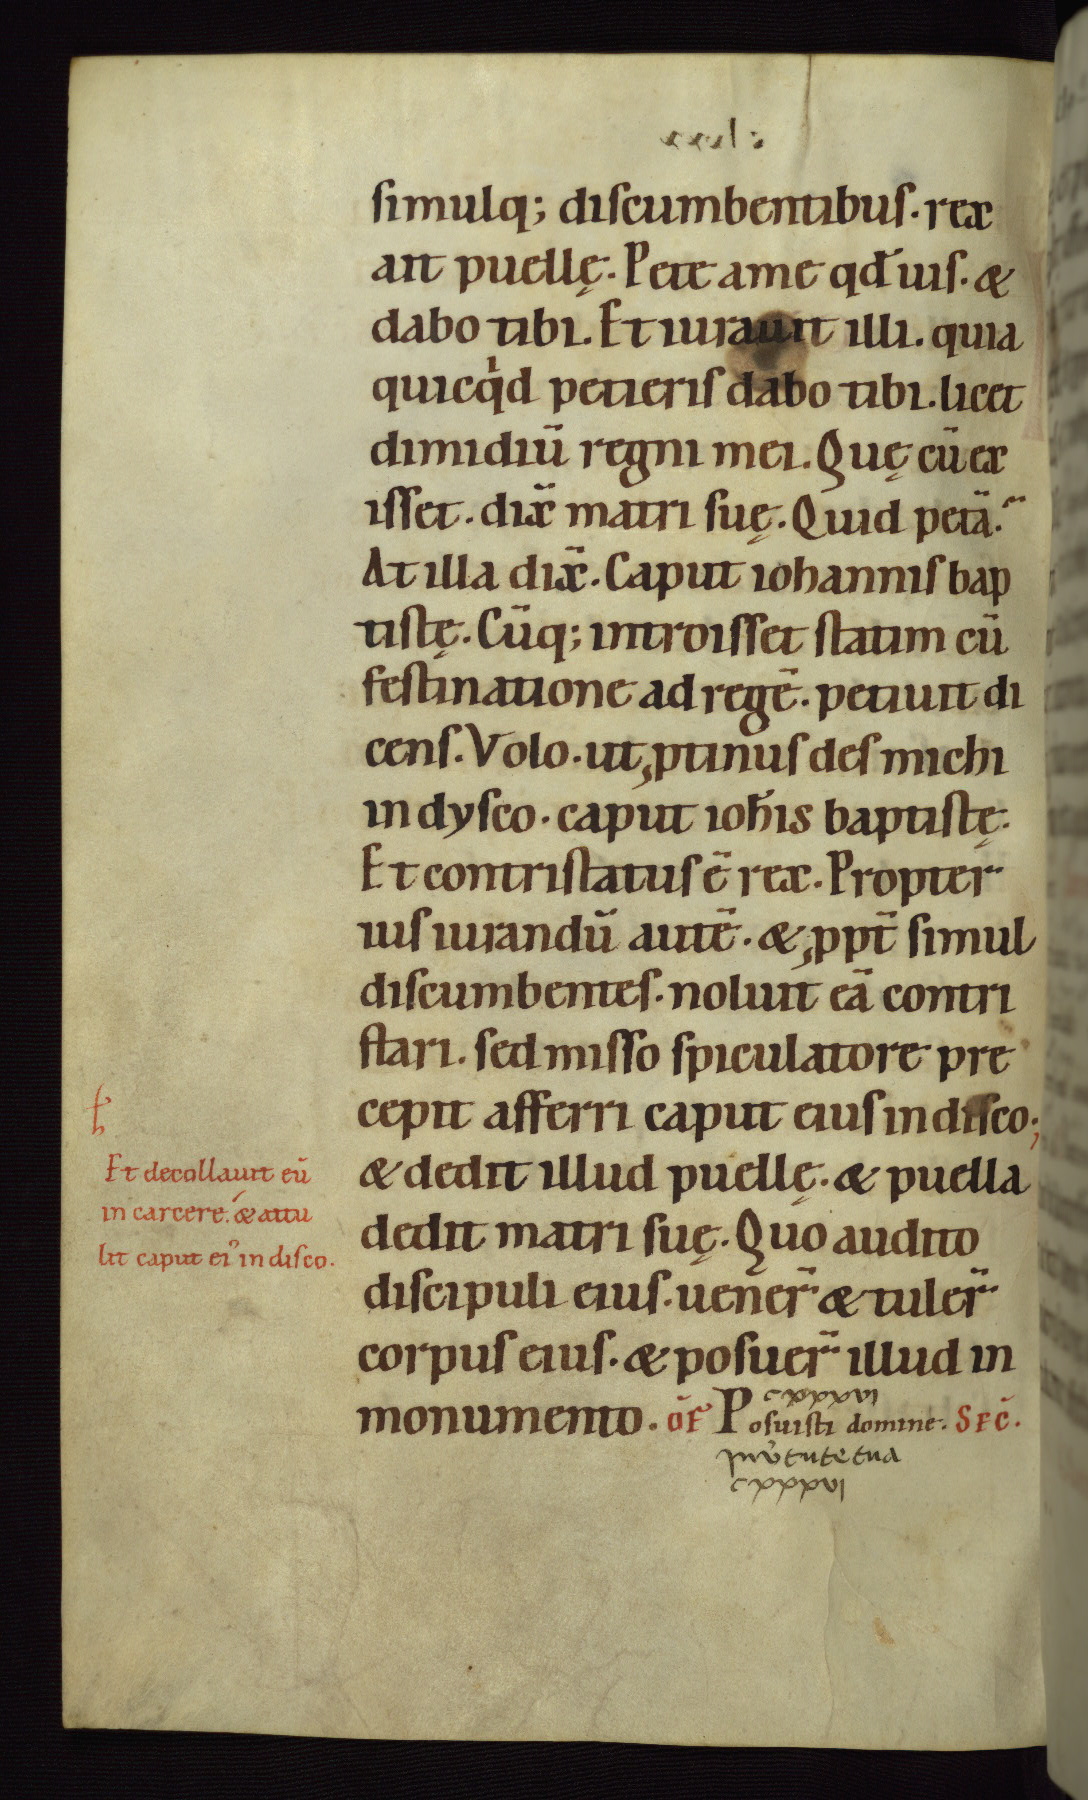 simulq; discumbentibus. rex
ait puellę. Pete a me qd̄ uis. &
dabo tibi. Et iurauit illi. quia
quicqͥd petieris dabo tibi. licet
dimidiū regni mei. Quę cū ex
isset. dix̄ matri suę. Quid petā.
At illa dix̄. Caput iohannis bap
tistę. Cūq; introisset statim cū
festinatione ad regē. petiuit di
cens. Volo. ut ꝓtinus des michi
in dysco. caput ioh̄is baptistę.
Et contristatus ē rex. Propter
ius iurandū autē. & ꝓpt̄ simul
discumbentes. noluit eā contri
stari. sed misso spiculatore pre
cepit afferri caput eius in disco;
Et decollauit eū
in carcere. & attu
lit caput ei᾿ in disco.
& dedit illud puellę. & puella
dedit matri suę. Quo audito
discipuli eius. uener̄ & tuler̄
corpus eius. & posuer̄ illud in
cxxxvi
monumento. ōf Posuisti domine. Sēc̄.
cxxxvi